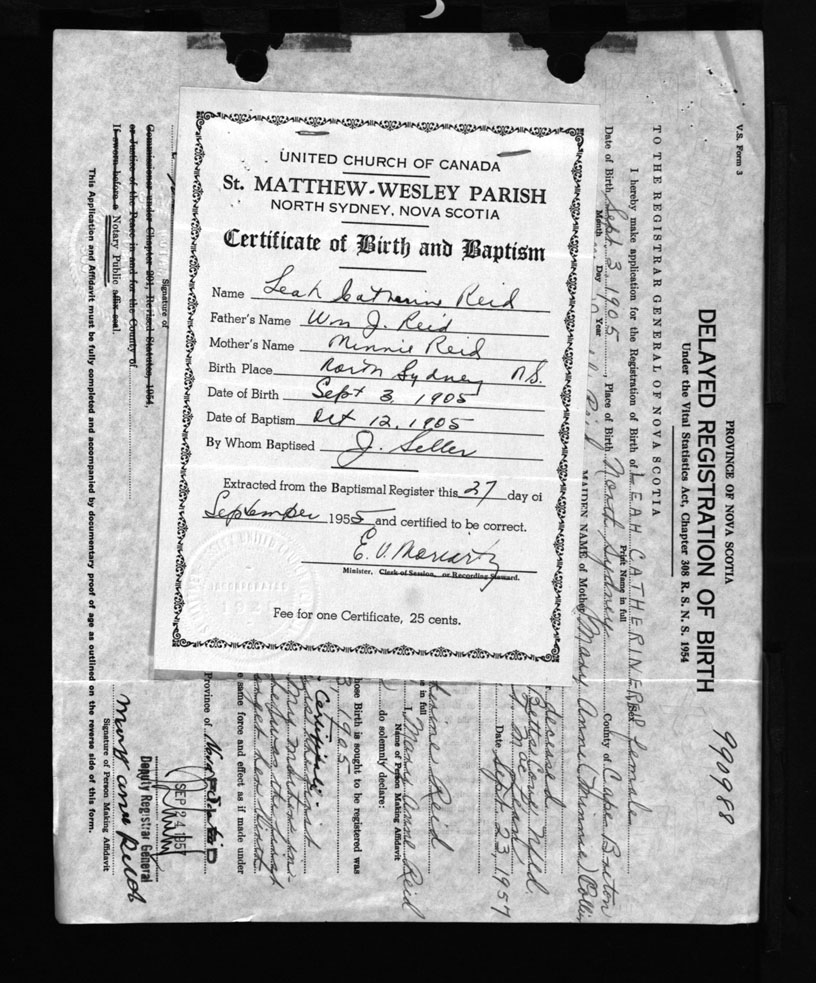 UNITED CHURCH OF CANADA
St. MATTHEW-WESLEY PARISH
NORTH SYDNEY, NOVA SCOTIA
Certificate of Birth and Baptism
Name Leah Catherine Reid
Father's Name Wm J. Reid
Mother's Name Minnie Reid
Birth Place North Sydney N.S.
Date of Birth Sept 3, 1905
Date of Baptism Oct 12, 1905
By Whom Baptised J. Seller
Extracted from the Baptismal Register this 27 day of
September 1955 and certified to be correct.
E. V. Moriarty
Minister, Clerk of Session, or Recording Steward.
Fee for one Certificate, 25 cents.
V.S. Form 3
990988
PROVINCE OF NOVA SCOTIA
DELAYED REGISTRATION OF BIRTH
Under the Vital Statistics Act, Chapter 308 R. S. N. S. 1954
TO THE REGISTRAR GENERAL OF NOVA SCOTIA
I hereby make application for the Registration of Birth of LEAH CATHERINE REID Sex female
Print Name in full
Date of Birth Sept. 3, 1905, Place of Birth North Sydney County of Cape Breton
Month Day Year
Reid MAIDEN NAME of Mother Mary Anne (Minnie) Collin
deceased
Betts Cove, Nfld.
Date Sept. 23, 1957
Reid
e in full
I, Mary Anne Reid
Name of Person Making Affidavit
do solemnly declare:
hose Birth is sought to be registered was
3, 1905
e same force and effect as if made under
Province of Nova Scotia
SEP 24 1957
Deputy Registrar General
Mary Anne Reid
Signature of Person Making Affidavit
Signature of
Commissioner under Chapter 201, Revised Statutes, 1954,
or Justice of the Peace in and for the County of
If sworn before a Notary Public affix seal.
This Application and Affidavit must be fully completed and accompanied by documentary proof of age as outlined on the reverse side of this form.